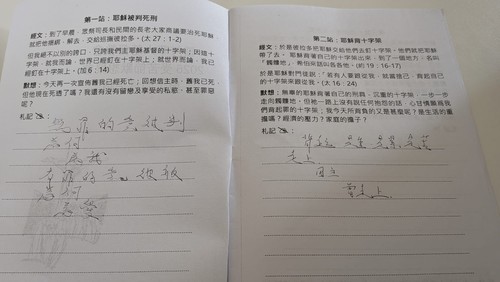 第一站：耶穌被判死刑
經文：到了早晨，眾祭司長和民間的長老大家商議要治死耶穌
就把他捆綁，解去，交給巡撫彼拉多。(太 27：1-2)
但我絕不以別的誇口，只誇我們主耶穌基督的十字架；因這十
字架，就我而論，世界已經釘在十字架上；就世界而論，我已
經釘在十字架上。(加 6：14)
默想：今天再一次宣佈舊我已經死亡；回想信主時，舊我已死，
但他現在死透了嗎？我還有沒有留戀及享受的私慾，甚至罪惡
呢？
札記
無罪的 被判
為何
為我
有罪的 被
為何
為愛
第二站：耶穌背十字架
經文：於是彼拉多把耶穌交給他們去釘十字架，他們就把耶穌
帶了去。耶穌背著自己的十字架出來，到了一個地方，名叫
「髑髏地」，希伯來話叫各各他。(約 19：16-17)
於是耶穌對門徒說：「若有人要跟從我，就當捨己，背起自己
的十字架來跟從我。(太 16：24)
默想：無辜的耶穌背著自己的刑具，沉重的十字架，一步一步
走向髑髏地，但祂一路上沒有說任何抱怨的話，心甘情願為我
們背起罪的十字架；我今天所背負的又是甚麼呢？是生活的重
擔嗎？經濟的壓力？家庭的擔子？
札記
走上
走上